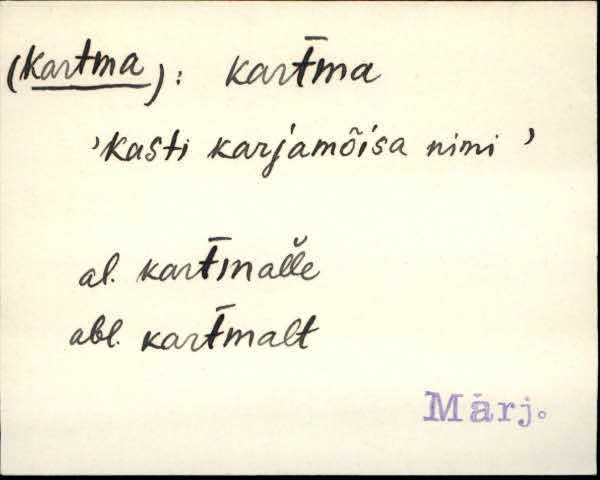 (kartma): kart̄ma
'Kasti karjamõisa nimi'
al. kart̄mal̆l̆e
abl. kart̄malt
Märj.